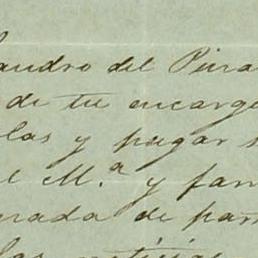 andro del Pina
de tu encarg
las y pagar s
el M.ª y fam
rada de par
las noticias